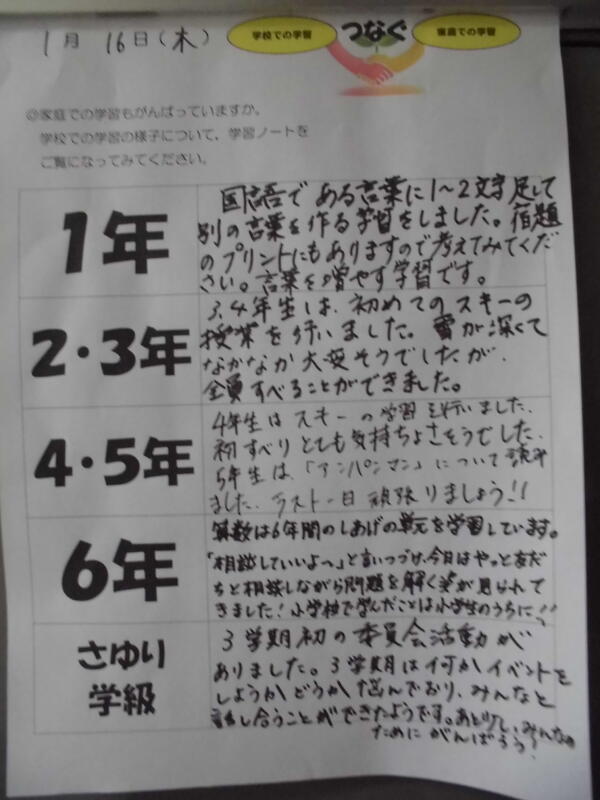 1月 16日(木)
学校での学習 つなぐ 家庭での学習
◎家庭での学習もがんばっていますか。
学校での学習の様子について、学習ノートを
ご覧になってみてください。
1年
国語で ある言葉に1〜2文字足して
別の言葉を作る学習をしました。宿題
のプリントにもありますので考えてみてくだ
さい。言葉を増やす学習です。
2・3年
3,4年生は、初めてのスキーの
授業を行いました。雪が深くて
なかなか大変そうでしたが、
全員すべることができました。
4・5年
4年生はスキーの学習を行いました。
初すべりとても気持ちよさそうでした。
5年生は、「アンパンマン」について読み
ました。ラスト一日頑張りましょう!!
6年
算数は6年間のしあげの単元を学習しています。
「相談していいよ〜」と言いつづけ、今日はやっと友だ
ちと相談しながら問題を解く姿が見られて
きました!小学校で学んだことは小学生のうちに!!
さゆり
学級
3学期初の委員会活動が
ありました。3学期は何かイベントを
しようかどうか悩んでおり、みんなと
話し合うことができたようです。みんなの
ためにがんばろう!